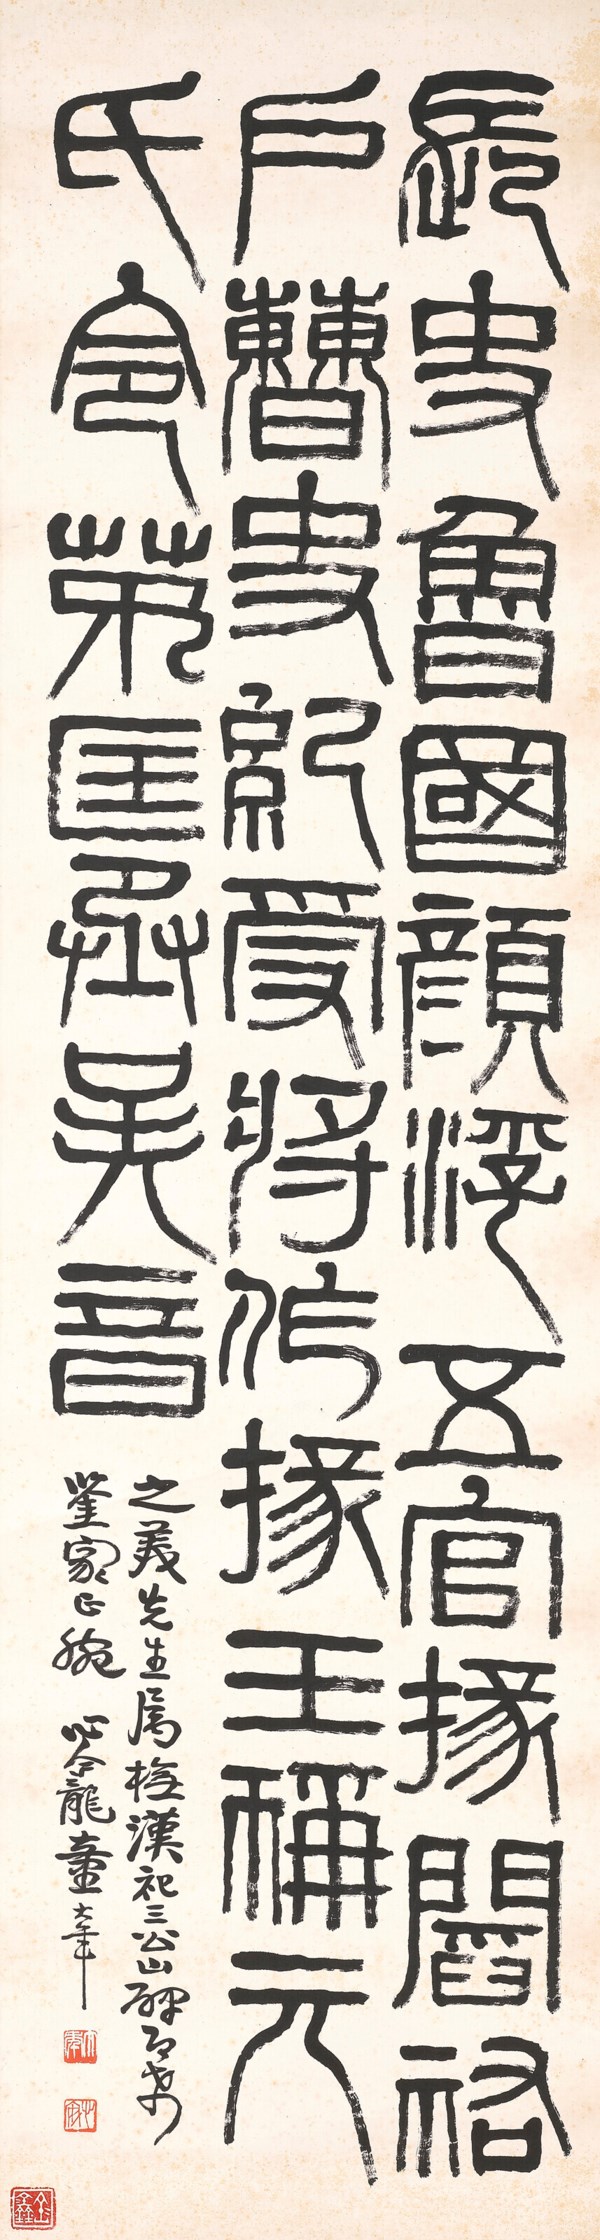 長史魯國顏浮五官掾閻祐
戶曹史紀受將作掾王稱元
氏令茅匡丞吳音
之義先生屬橅漢祀三公山碑即希
鑒家正腕 心龕童大年